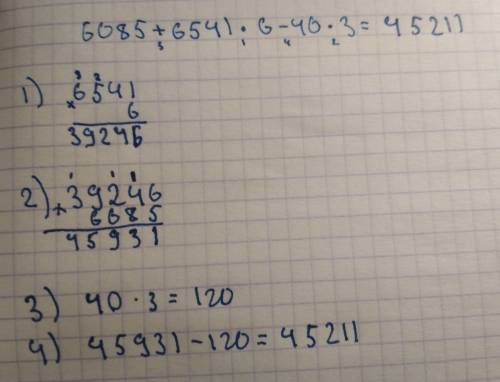 6085+6541·6-40·3=45211
3 1 4 2
1) 3 2
×6541
6
39246
2) +39246
6685
45931
3) 40·3=120
4) 45931-120=45211